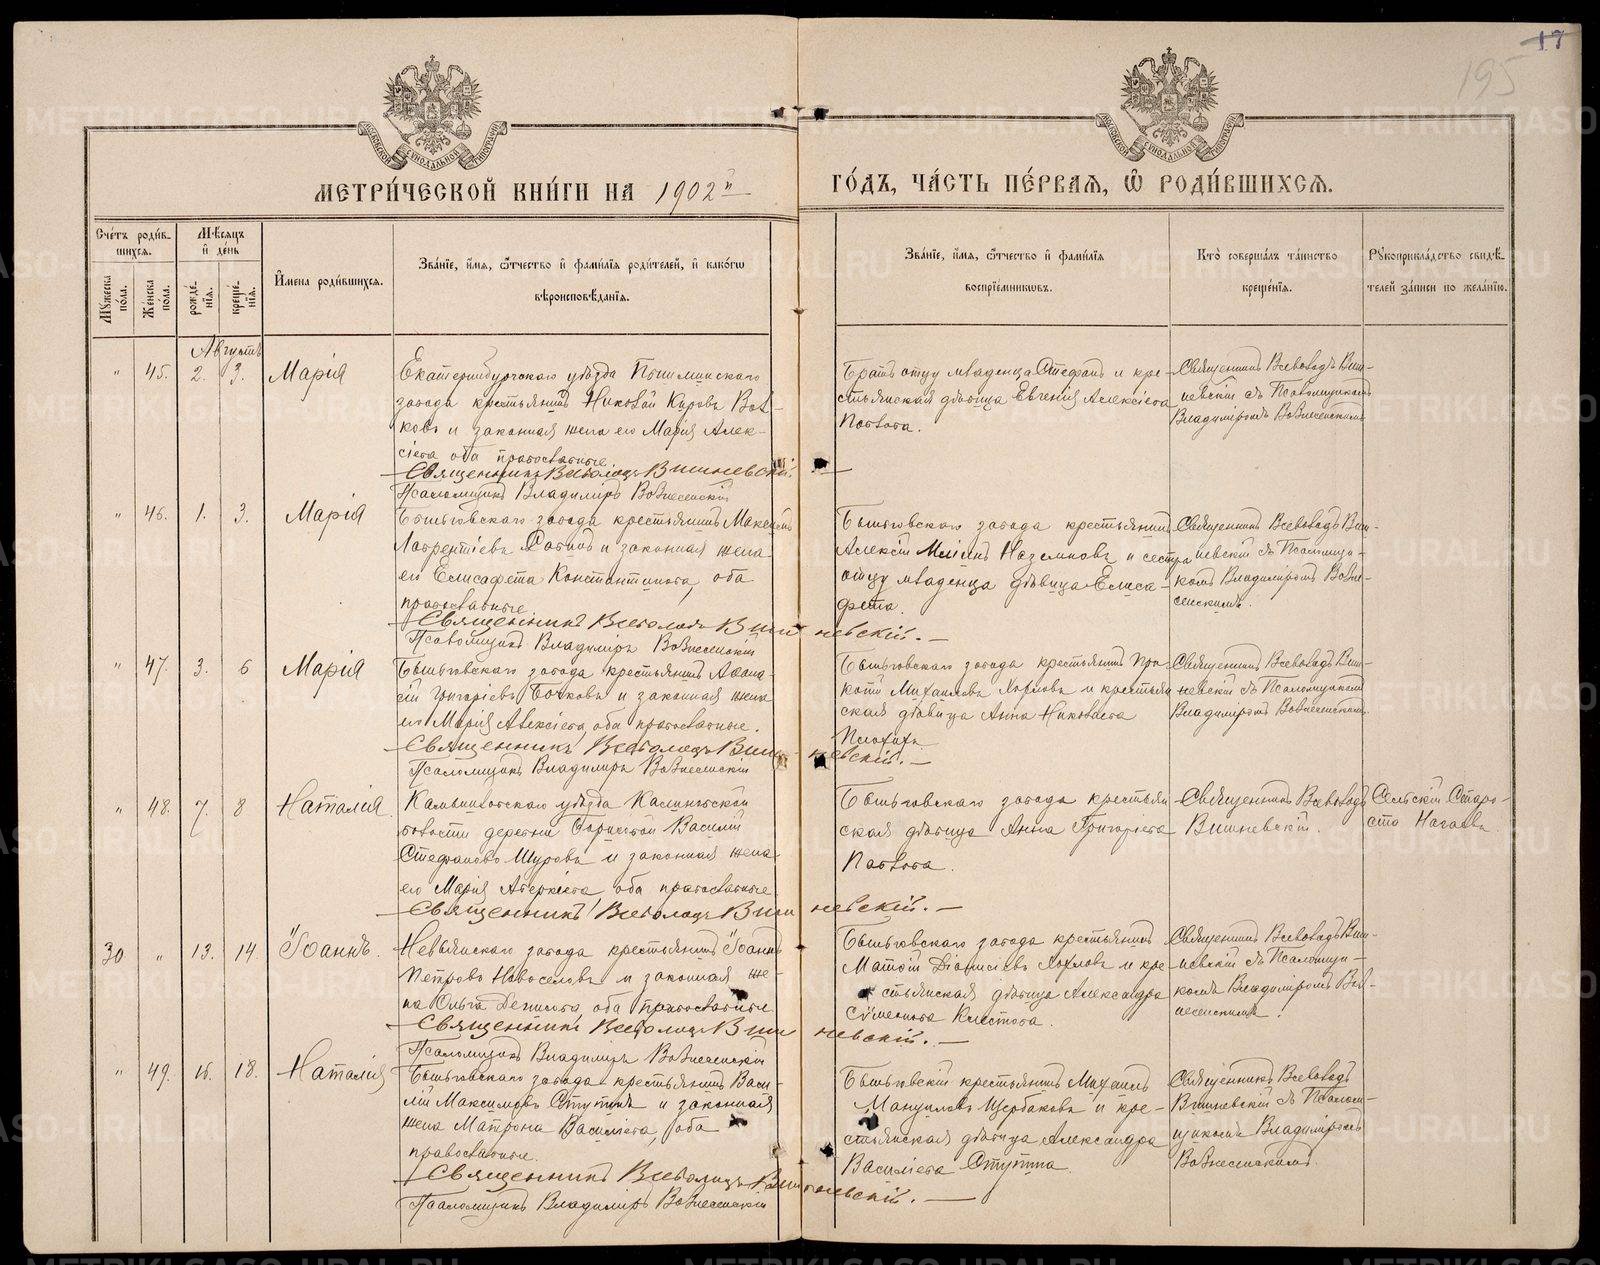 17
195
МЕТРИ́ЧЕСКОЙ КНИ́ГИ НА 1902й
ГО́ДЪ, ЧА́СТЬ ПЕ́РВАЯ, Ѿ РОДИ́ВШИХСЯ.
Сче́тъ роди́в-
шихся.
Му́жеска по́ла.
Же́нска по́ла.
Мѣ́сяцъ и҆ де́нь
рожде́-
нїя.
креще́-
нїя.
И҆мена роди́вшихся.
Зва́нїе, и҆́мя, ѻ҆́тчество и҆ фами́лїя роди́телей, и҆ како́гѡ
вѣроисповѣ́данїя.
Зва́нїе, и҆́мя, ѻ҆́тчество и҆ фами́лїя
воспрїе́мникѡвъ.
Кто̀ соверша́лъ та́инство
креще́нїя.
Рукоприкла́дство свидѣ́-
телей за́писи по жела́нїю.
Августъ
" 45. 2. 3. Марія
Екатеринбургскаго уѣзда Пышминскаго
завода крестьянинъ Николай Кировъ Вол-
ковъ и законная жена его Марія Алек-
сіева оба православные
Священникъ Всеволодъ Вишневскій.
Псаломщикъ Владиміръ Вознесенскій
Братъ отцу младенца Стефанъ и кре-
стьянская дѣвица Евгенія Алексіева
Павлова.
Священникъ Всеволодъ Виш-
невскій съ Псаломщикомъ
Владиміромъ Вознесенскимъ
" 46. 1. 3. Марія
Быньговскаго завода крестьянинъ Максимъ
Лаврентіевъ и законная жена
его Елисавета Константинова, оба
православные
Священникъ Всеволодъ Вишневскій.
Псаломщикъ Владиміръ Вознесенскій
Быньговскаго завода крестьянинъ
Алексій Наземновъ и сестра
отцу младенца дѣвица Елиса-
фета.
Священникъ Всеволодъ Виш-
невскій съ Псаломщи-
комъ Владиміромъ Возне-
сенскимъ.
" 47. 3. 6 Марія
Быньговскаго завода крестьянинъ Афана-
сій Григоріевъ Бочковъ и законная жена
его Марія Алексіева, оба православные.
Священникъ Всеволодъ Вишневскій.
Псаломщикъ Владиміръ Вознесенскій
Быньговскаго завода крестьянинъ Про-
копій Михаиловъ Хохловъ и крестьян
ская дѣвица Анна Николаева
Плохихъ
Священникъ Всеволодъ Виш-
невскій съ Псаломщикомъ
Владиміромъ Вознесенскимъ.
" 48. 7. 8 Наталія
уѣзда
волости деревни Василій
Стефановъ Шуровъ и законная жена
его Марія Аверкіева оба православные
Священникъ Всеволодъ Вишневскій.
Быньговскаго завода крестьян
ская дѣвица Анна Григоріева
Павлова.
Священникъ Всеволодъ
Вишневскій.
Сельскій Старо-
ста
30 " 13. 14 Іоаннъ.
Невьянскаго завода крестьянинъ Іоаннъ
Петровъ Новоселовъ и законная же-
на Ольга Денисова оба православные
Священникъ Всеволодъ Вишневскій.
Псаломщикъ Владиміръ Вознесенскій
Быньговскаго завода крестьянинъ
Матѳій Діонисіевъ Хохловъ и кре-
стьянская дѣвица Александра
Симеонова Клестова.
Священникъ Всеволодъ Виш-
невскій съ Псаломщи-
комъ Владиміромъ Воз-
несенскимъ.
" 49. 18. Наталія
Быньговскаго завода крестьянинъ Васи-
лій Максимовъ Ступинъ и законная
жена Матрона Василіева, оба
православные.
Священникъ Всеволодъ Вишневскій.
Псаломщикъ Владиміръ Вознесенскій
Быньговскій крестьянинъ Михаилъ
Мануиловъ Щербаковъ и кре-
стьянская дѣвица Александра
Василіева Ступина.
Священникъ Всеволодъ
Вишневскій съ Псалом-
щикомъ Владиміромъ
Вознесенскимъ.
METRIKI.GASO-URAL.RU